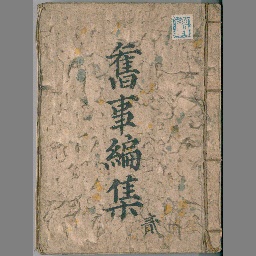 舊事編集
貳